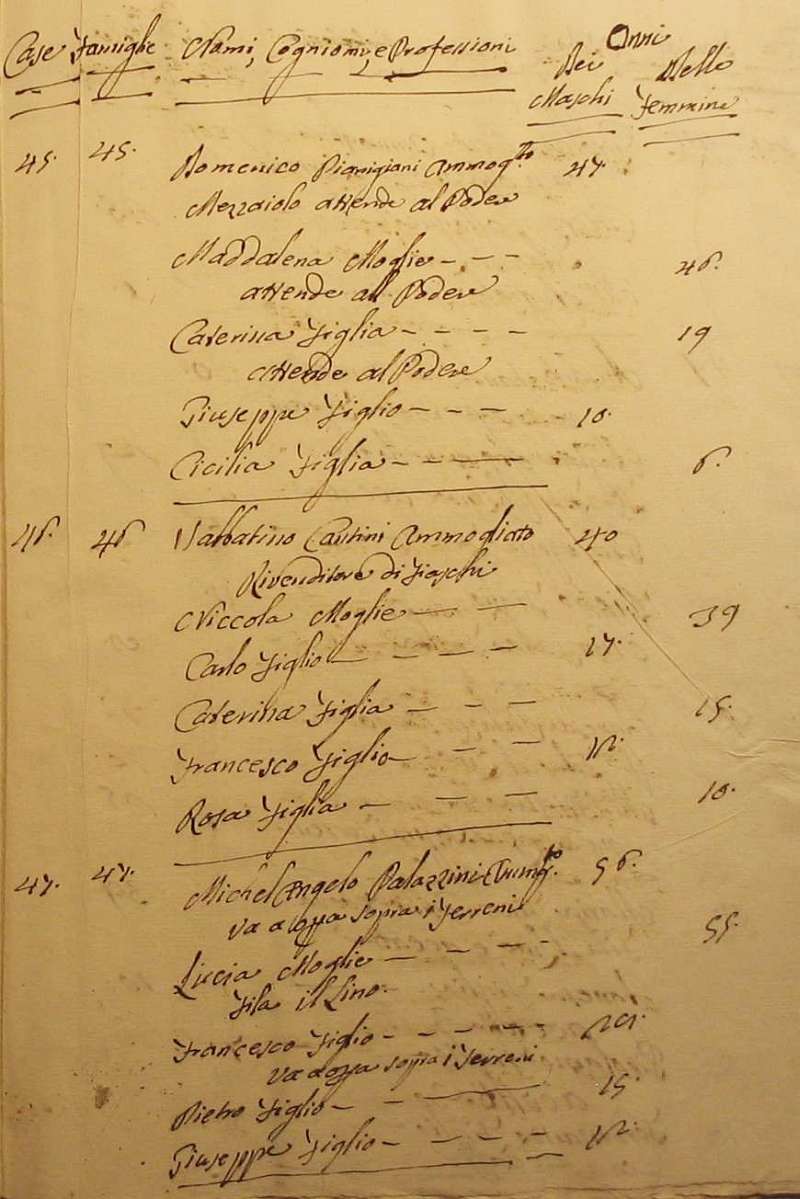 Anni
Case Famiglie Nomi, Cogniomi, e Professioni Dei Delle
Maschi Femmine
45. 45. Domenico Pianigiani Ammog.to 47.
Mezzaiolo attende al Podere
Maddalena Moglie - - - 46.
attende al Podere
Caterina Figlia - - - - 19
attende al Podere
Giuseppe Figlio - - - 10.
Cicilia Figlia - - - 6.
46. 46 Sabbatino Cantini Ammogliato 40
Rivenditore di Fiaschi
Niccola Moglie - - 39
Carlo Figlio - - - - 17.
Caterina Figlia - - - 15.
Francesco Figlio - - - 12.
Rosa Figlia - - - 10.
47. 47. Michel Angelo Palazzini Ammog.to 56.
Va a opra sopra i Terreni
Lucia Moglie - - - - 55.
Fila il Lino.
Francesco Figlio - - - - -
Va a opra sopra i Terreni
Pietro Figlio - - - 15.
Giuseppe Figlio - - - - 12.